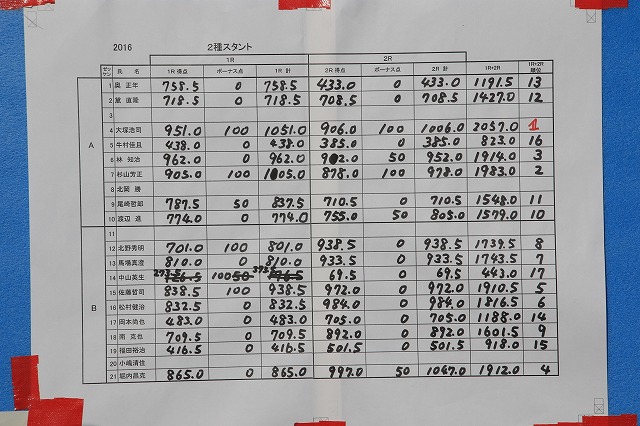 2016 2種スタント
1R 2R
ゼッケン 氏 名 1R 得点 ボーナス点 1R 計 2R 得点 ボーナス点 2R 計 1R+2R 1R+2R 順位
A
1 奥 正年 758.5 0 758.5 433.0 0 433.0 1191.5 13
2 簗 直隆 718.5 0 718.5 708.5 0 708.5 1427.0 12
3
4 大塚浩司 951.0 100 1051.0 906.0 100 1006.0 2057.0 1
5 牛村佳且 438.0 0 438.0 385.0 0 385.0 823.0 16
6 林 知治 962.0 0 962.0 902.0 50 952.0 1914.0 3
7 杉山芳正 905.0 100 1005.0 878.0 100 978.0 1983.0 2
8 北岡 勝
9 尾崎哲郎 787.5 50 837.5 710.5 0 710.5 1548.0 11
10 渡辺 進 774.0 0 774.0 755.0 50 805.0 1579.0 10
B
11
12 北野秀明 701.0 100 801.0 938.5 0 938.5 1739.5 8
13 馬場真澄 810.0 0 810.0 933.5 0 933.5 1743.5 7
14 中山英生 100 69.5 0 69.5 443.0 17
15 佐藤哲司 838.5 100 938.5 972.0 0 972.0 1910.5 5
16 松村健治 832.5 0 832.5 984.0 0 984.0 1816.5 6
17 岡本尚也 483.0 0 483.0 705.0 0 705.0 1188.0 14
18 南 克也 709.5 0 709.5 892.0 0 892.0 1601.5 9
19 福田裕治 416.5 0 416.5 501.5 0 501.5 918.0 15
20 小嶋清也
21 堀内昌克 865.0 0 865.0 997.0 50 1047.0 1912.0 4